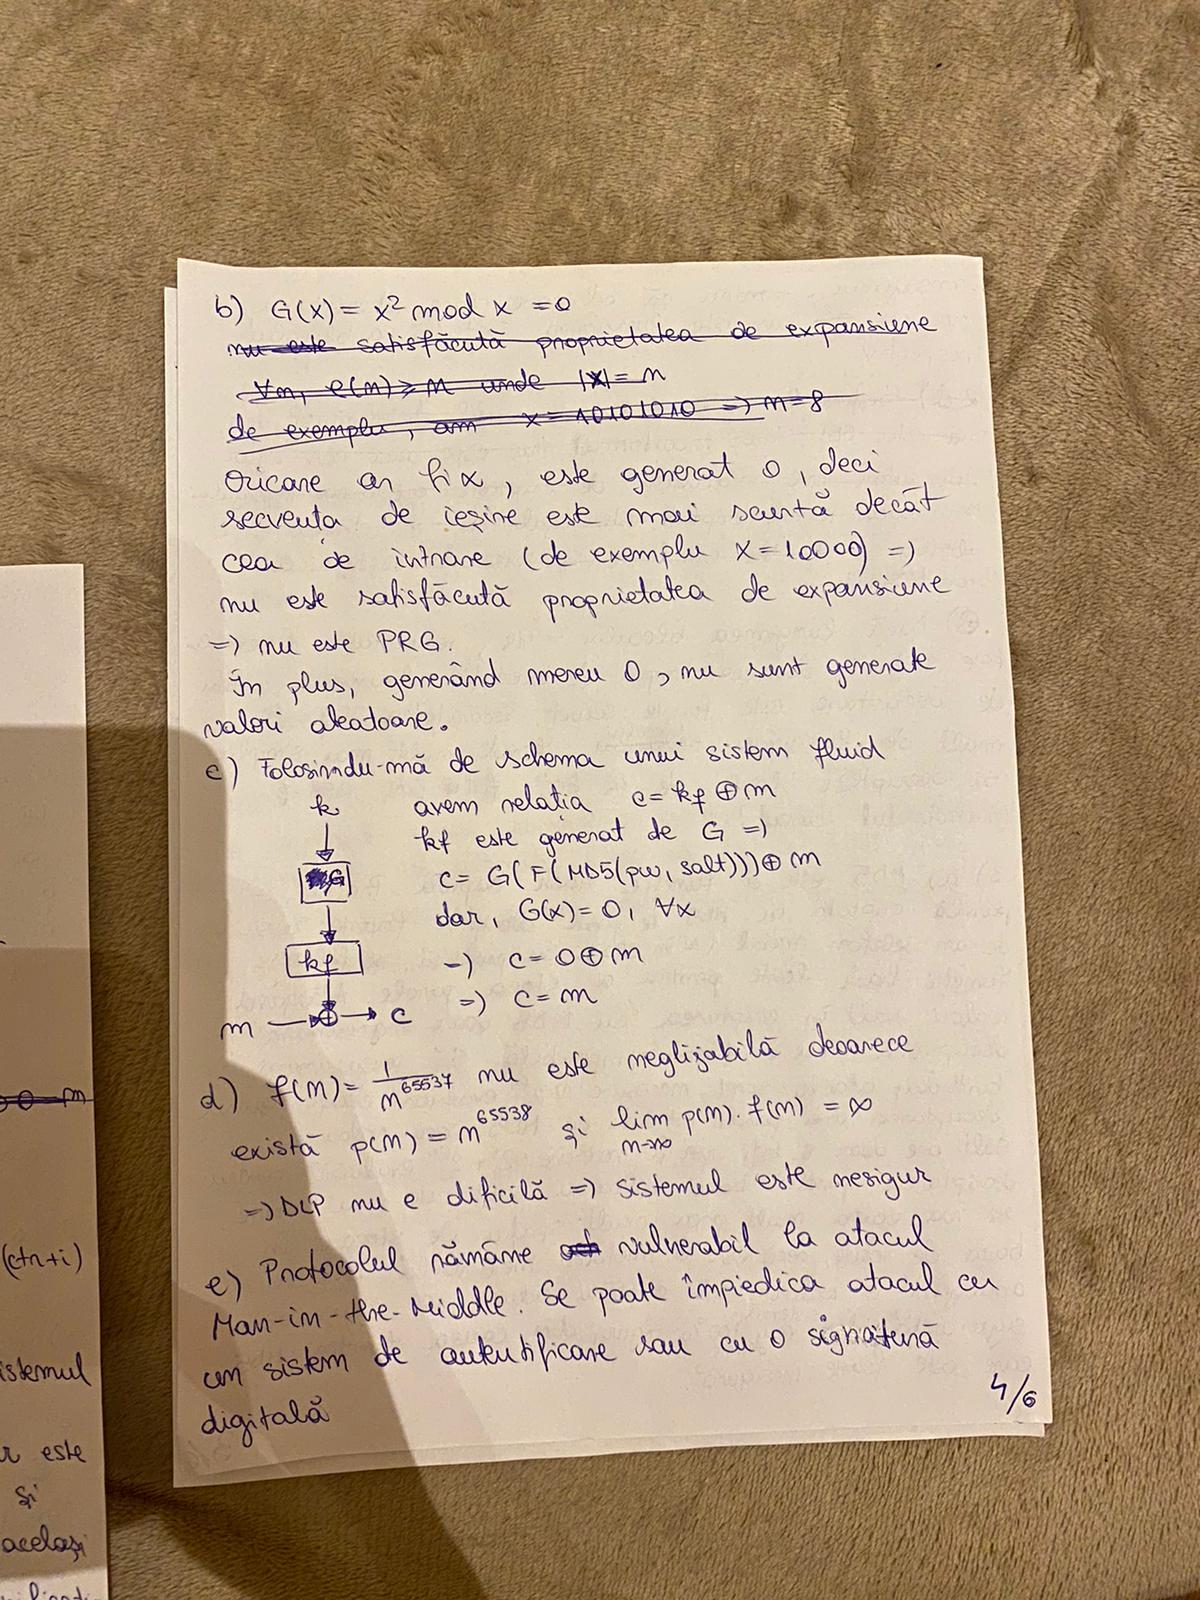 b) G(x) = x² mod x = 0
nu este satisfăcută proprietatea de expansiune
∀n, l(n) > n unde |x| = n
de exemplu, am x = 10101010 => n=8
Oricare ar fi x, este generat 0, deci
secvența de ieșire este mai scurtă decât
cea de intrare (de exemplu x=10000) =>
nu este satisfăcută proprietatea de expansiune
=> nu este PRG.
În plus, generând mereu 0, nu sunt generate
valori aleatoare.
c) Folosindu-mă de schema unui sistem fluid
k avem relația c = kf ⊕ m
kf este generat de G =>
G c = G(F(MD5(pw, salt))) ⊕ m
dar, G(x) = 0, ∀x
kf => c = 0 ⊕ m
=> c = m
m ⊕ → c
d) f(n) = 1/n^65537 nu este neglijabilă deoarece
există p(n) = n^65538 și lim n→∞ p(n) · f(n) = ∞
=> DLP nu e dificilă => sistemul este nesigur
e) Protocolul rămâne vulnerabil la atacul
Man-in-the-Middle. Se poate împiedica atacul cu
un sistem de autentificare sau cu o signatură
digitală
4/6
(ctr+i)
istemul
r este
și
același